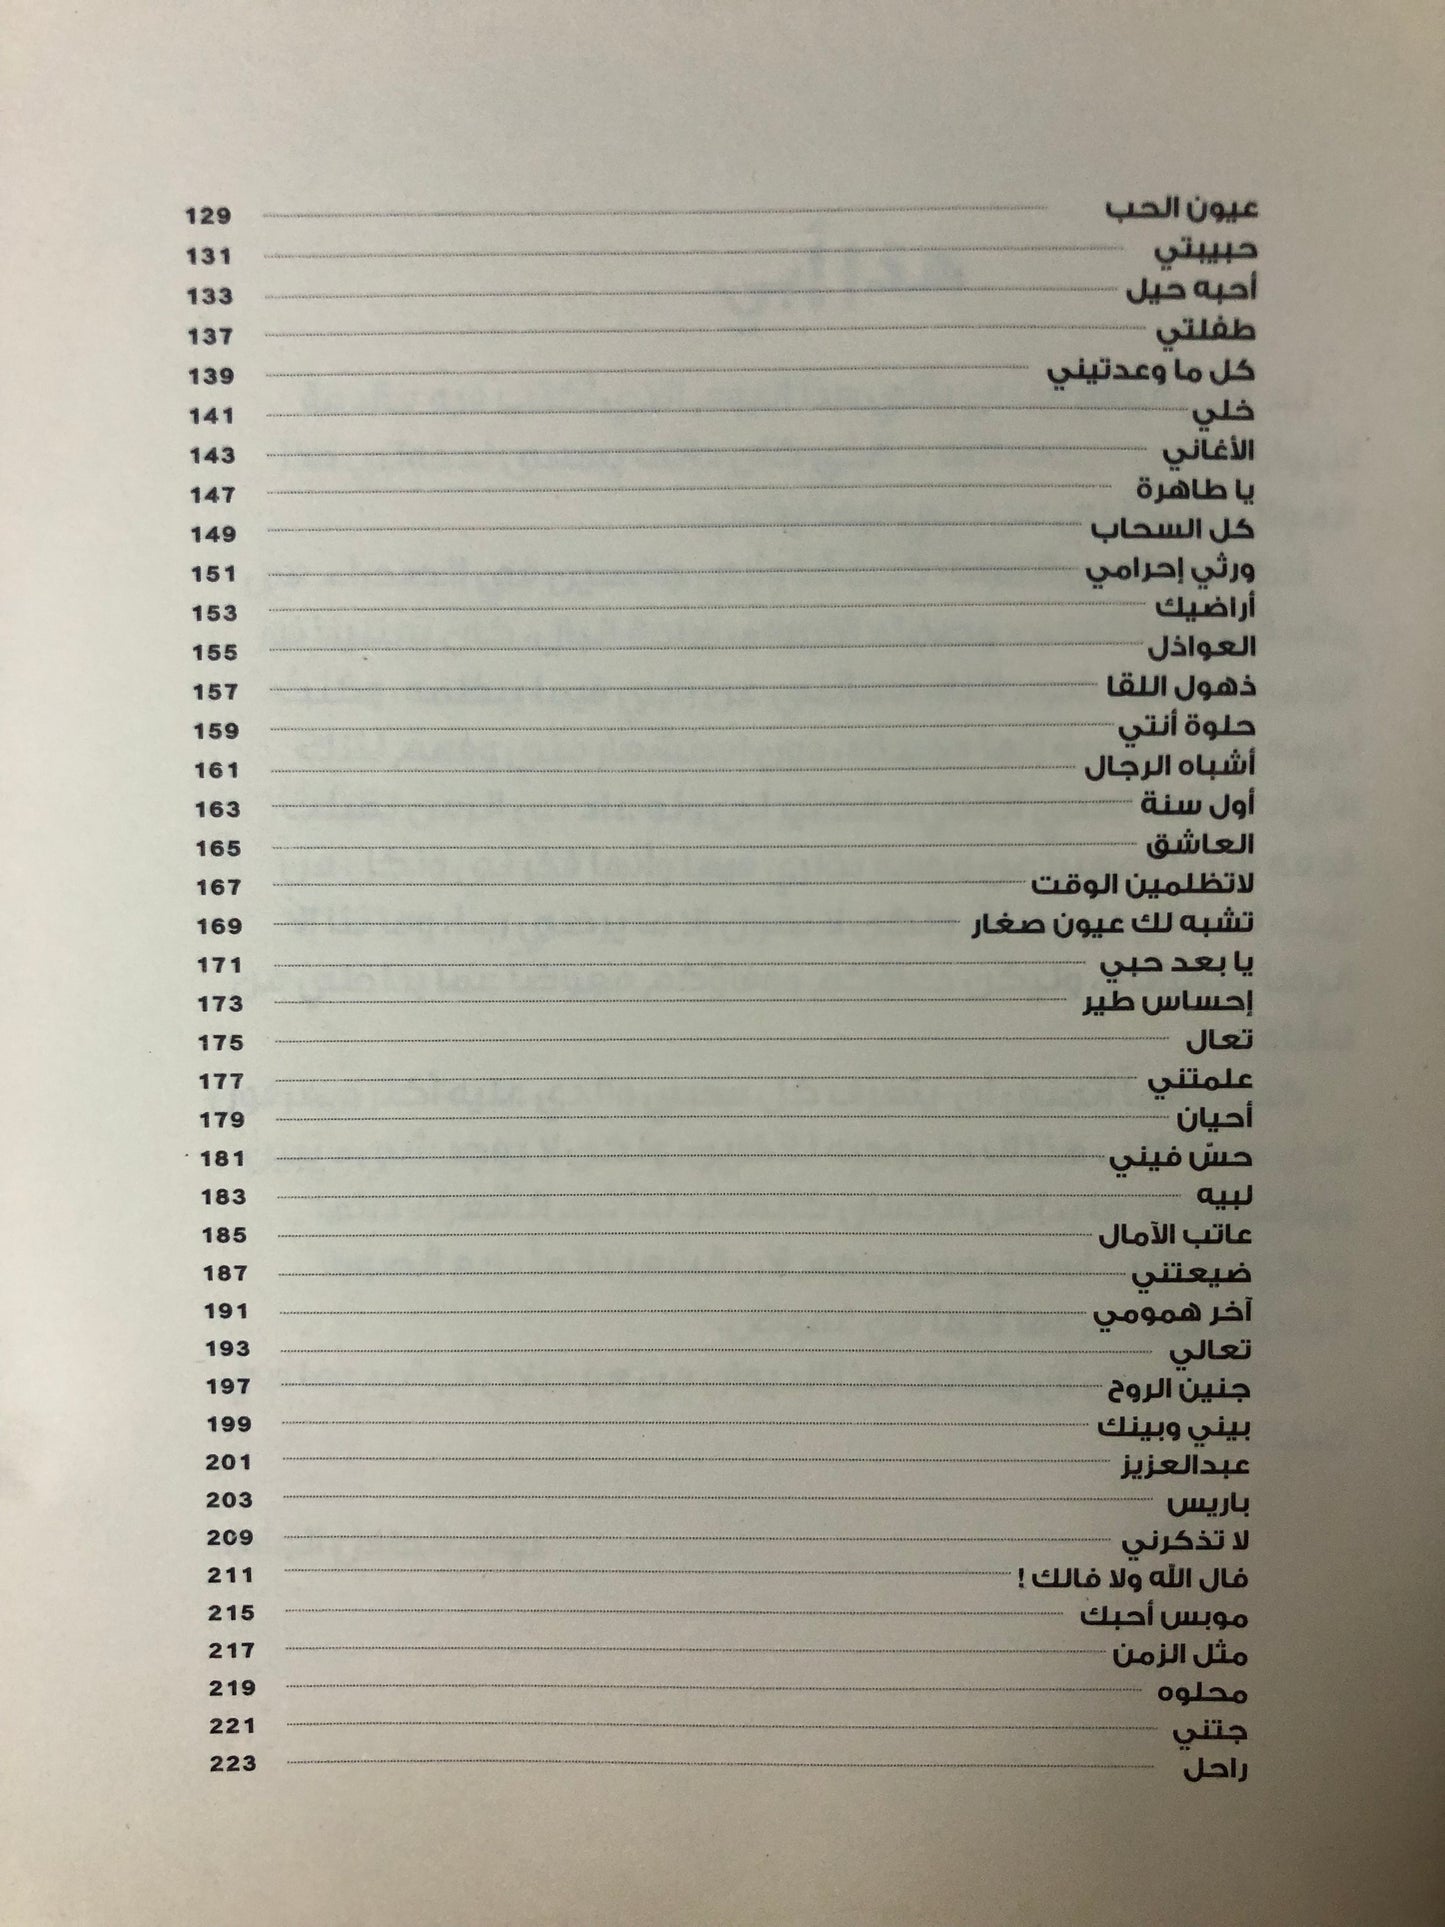 عيون الحب 129
حبيبتي 131
أحبه حيل 133
طفلتي 137
كل ما وعدتيني 139
خلي 141
الأغاني 143
يا طاهرة 147
كل السحاب 149
ورثي إحرامي 151
أراضيك 153
العواذل 155
ذهول اللقا 157
حلوة أنتي 159
أشباه الرجال 161
أول سنة 163
العاشق 165
لاتظلمين الوقت 167
تشبه لك عيون صغار 169
يا بعد حبي 171
إحساس طير 173
تعال 175
علمتني 177
أحيان 179
حسّ فيني 181
لبيه 183
عاتب الآمال 185
ضيعتني 187
آخر همومي 191
تعالي 193
جنين الروح 197
بيني وبينك 199
عبدالعزيز 201
باريس 203
لا تذكرني 209
فال الله ولا فالك ! 211
موبس أحبك 215
مثل الزمن 217
محلوه 219
جتني 221
راحل 223